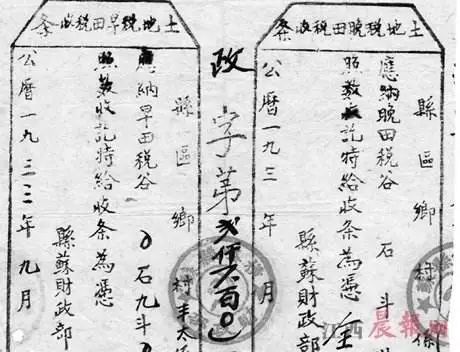 土地税晚田税收条
縣區鄉村
應納晚田税谷 石 斗
照数收訖特給收条為憑
縣蘇財政部
公曆一九三 年 月
政字第弍仟六百〇
土地税早田税收条
縣區鄉村
應納早田税谷〇石九斗〇
照数收訖特給收条為憑
縣蘇財政部
公曆一九三三年九月
江西晨報網